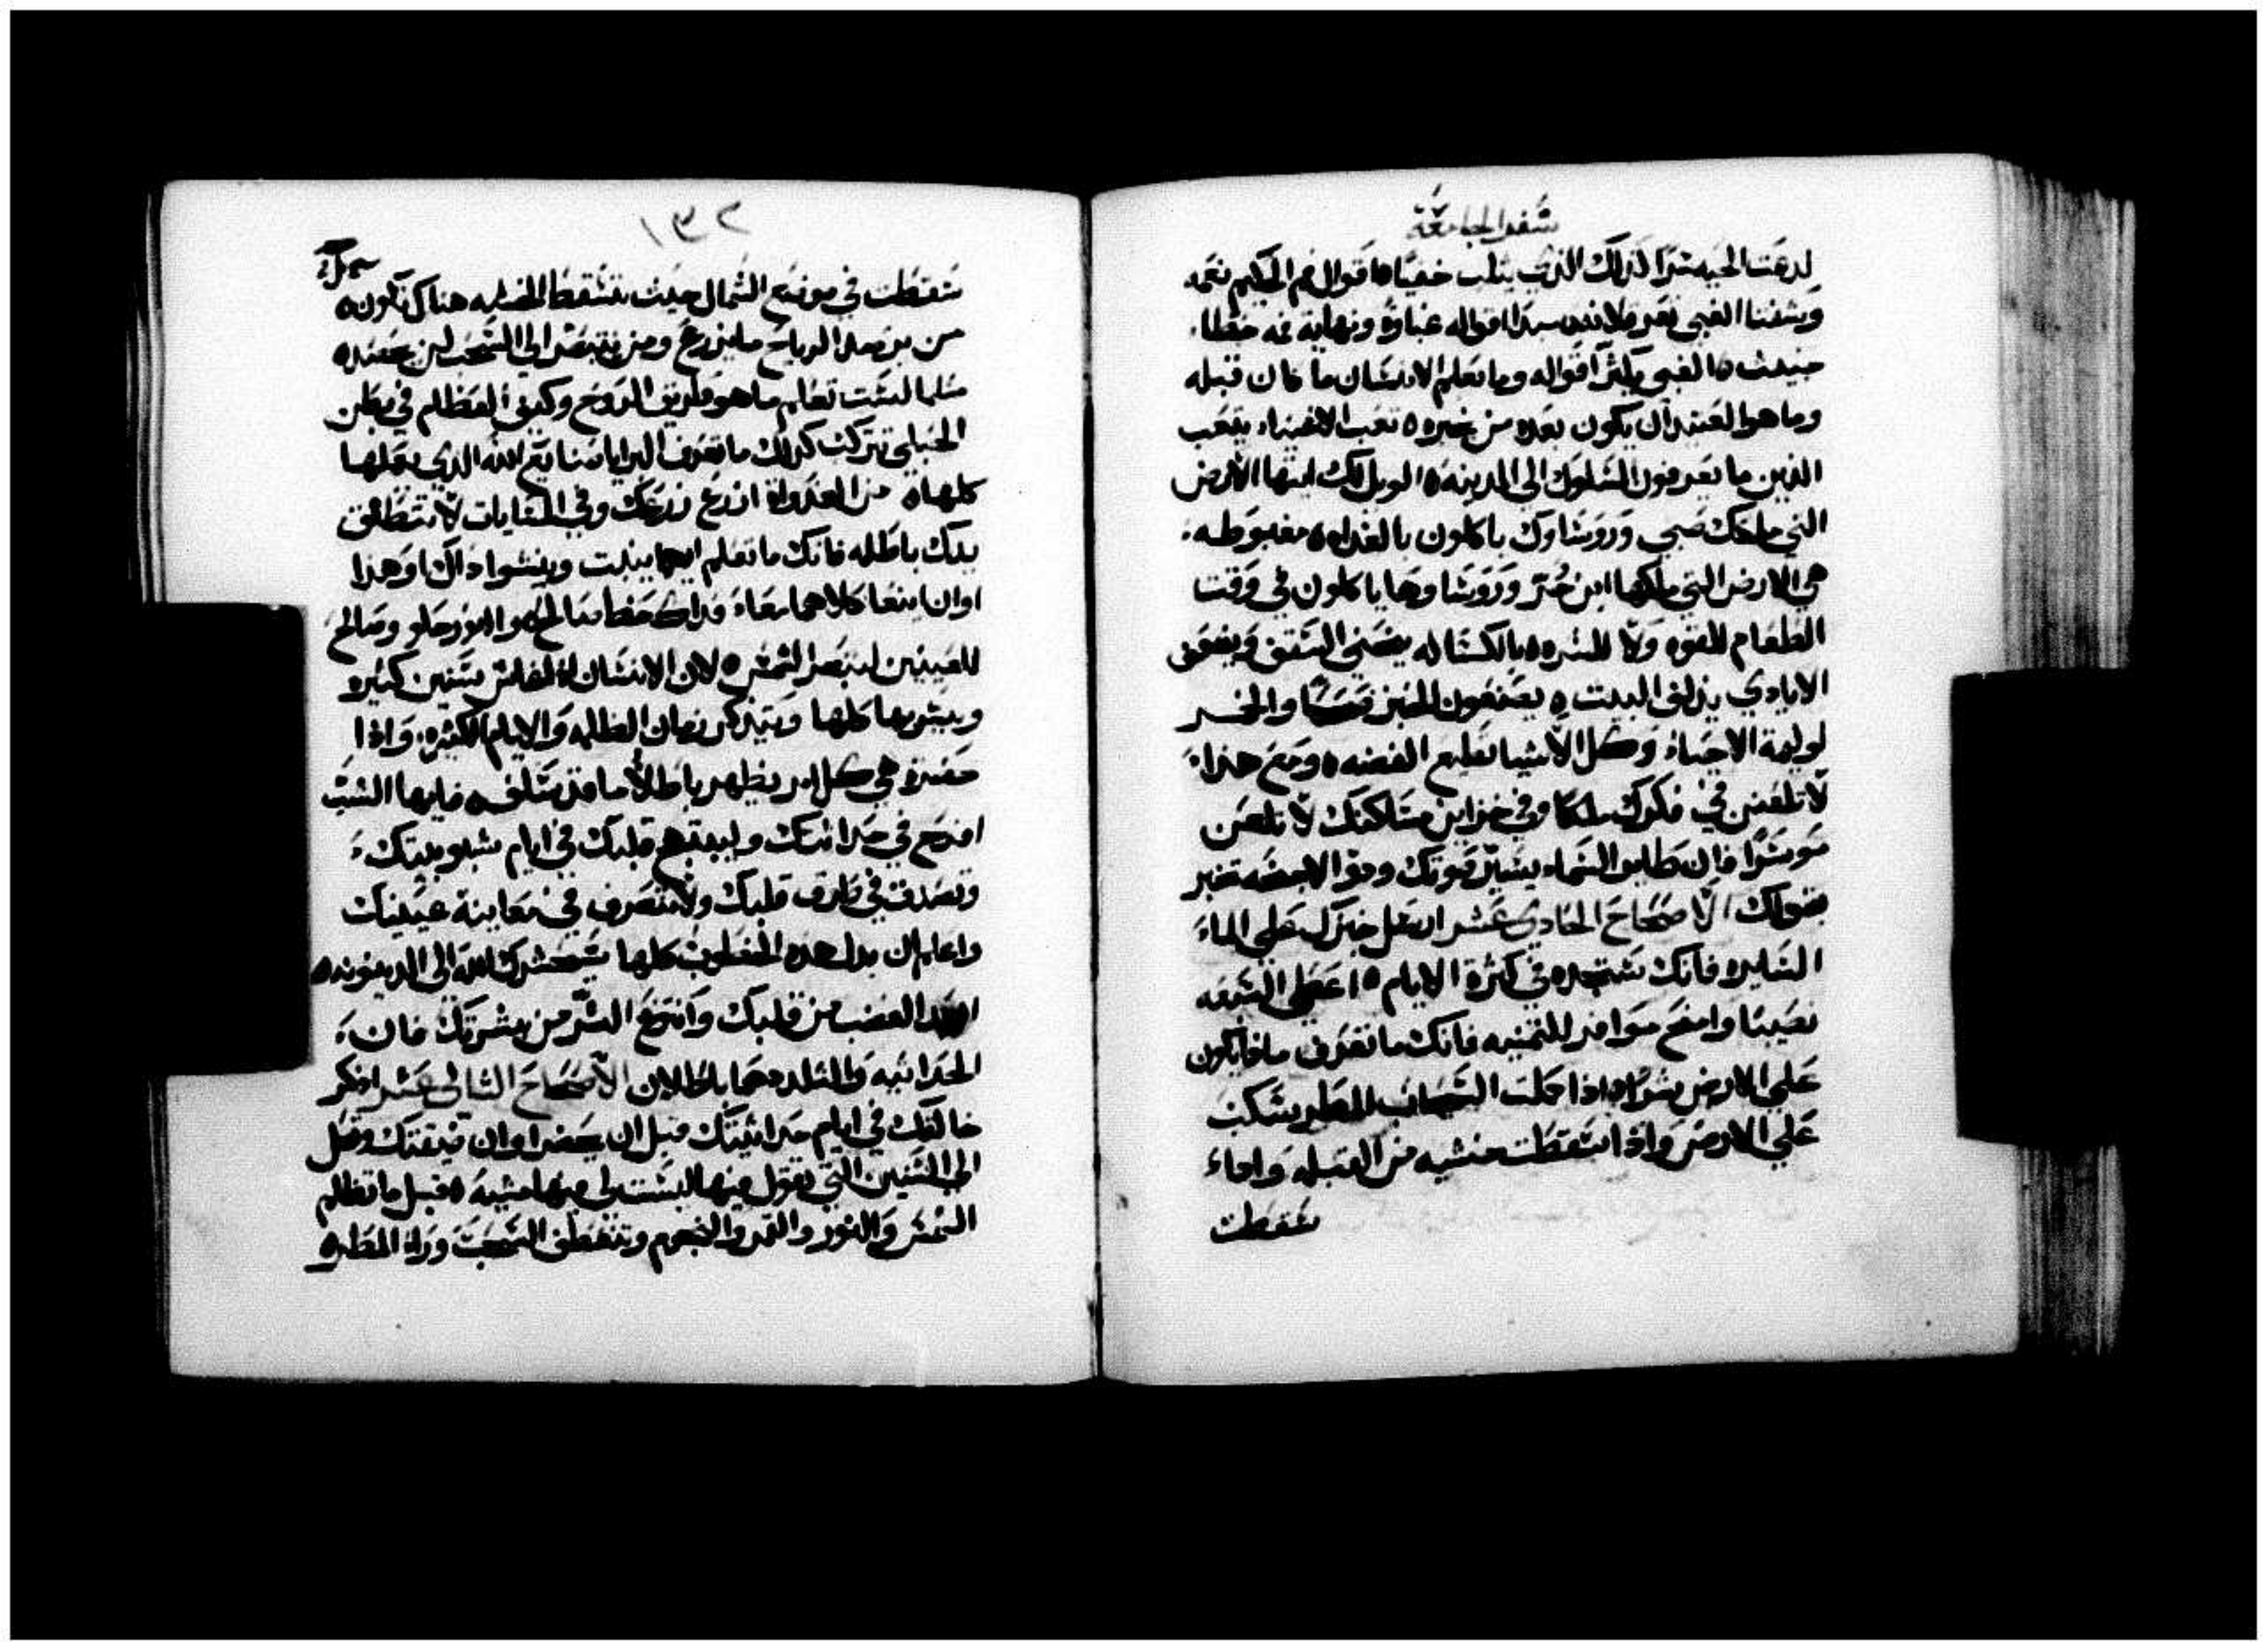 سفر الجامعة
لدغت الحيه سرًا كذلك الذي يثلب خفيًا ٥ اقوال فم الحكيم نعمه
وشفتا الغبي تغرقلانه بدا اقواله غباوة ونهاية فمه خطا
خبيث ٥ الغبي يكثر اقواله وما يعلم الانسان ما كان قبله
وما هو العتيد ان يكون بعده من يخبره ٥ تعب الاغبياء يتعب
الذين ما يعرفون السلوك الي المدينه ٥ الويل لك ايتها الارض
التي ملكك صبي وروساوك ياكلون بالغداه ٥ مغبوطه
هي الارض التي ملكها ابن حُر وروسا وها ياكلون في وقت
الطعام للقوه ولا للشره ٥ بالكساله يضني السقف وبضعف
الايادي يذلف البيت ٥ يصنعون الخبز والخمر
لوليمة الاحياء وكل الاشيا تطيع الفضه ٥ ومع هذا
لا تلعن في فكرك ملكًا وفي خزاين مساكنك لا تلعن
موسرًا فان طاير السماء يسير بصوتك وذو الاجنحه تخبر
بقولك الاصحاح الحادي عشر ارسل خبزك علي الماء
السايره فانك ستجده في كثرة الايام ٥ اعطي السبعه
نصيبًا وامنح موافر للثمنيه فانك ما تعرف ماذا يكون
علي الارض شرًا ٥ اذا حملت السحاب المطر يسكب
علي الارض واذا سقطت خشبه من القبله واما
سقطت
١٣٢
سقطت في موضع الشمال حيث تسقط الخشبه هناك تكون ٥
من يرصد الرياح ما يزرع ومن يتبصر الي السحب لن يحصد ٥
مثلما لست تعلم ما هو طريق الروح وكيف العظام في بطن
الحبلي تتركب كذلك ما تعرف البرايا صنايع الله الذي يعملها
كلها ٥ من الغداة ازرع زرعك وفي المسايات لا تطلق
يدك باطله فانك ما تعلم ايهما ينبت وينشوا ذاك او هذا
او ان ينعا كلاهما معاء فذاك حظا صالح ٥ النور حلو وصالح
للعينين لتبصر الشمس ٥ لان الانسان اذا عاش سنين كثيره
ويبتهج بها كلها ويتذكر زمان الظلمه والايام الكثيره واذا
حضرة هي كل امر يظهر باطلاً ما قد سلف ٥ فايها الشب
افرح في حداثتك وليبتهج قلبك في ايام شبوبيتك
وتصدق في طرق قلبك ولا تتصرف في معاينة عينيك
واعلم ان بدل هذه الخطوب كلها سيحشرك الله الي الدينونه ٥
ابعد الغضب من قلبك وانتزع الشر من بشرتك فان
الحداثيه والتلدد هما باطلان الاصحاح الثاني عشر اذكر
خالقك في ايام حداثيتك قبل ان يحضر اوان ضيقتك وتصل
الي السنين التي تقول فيها ليست لي فيها مشيه ٥ قبل ما تظلم
الشمس والنور والقمر والنجوم وتنعطف السحب وراء المطر ٥